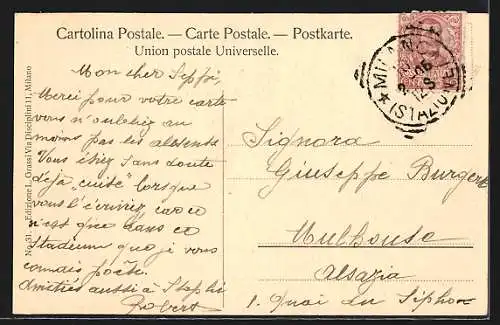 Cartolina Postale. — Carte Postale. — Postkarte.
Union postale Universelle.
MILANO
(STAZIONE)
No. 31 Edizione L. Grassi Via Disciplini 11, Milano
Mon cher Seppi,
Merci pour votre carte
vous n'oubliez au
moins pas les absents
Vous étiez sans doute
déjà "cuité" lorsque
vous l'écriviez, car ce
n'est que dans ce
stadium que je vous
connais poète.
Amitiés aussi à Stephi
Robert
Signora
Giuseppe Burger
Mulhouse
Alsazia
1. Quai du Siphon